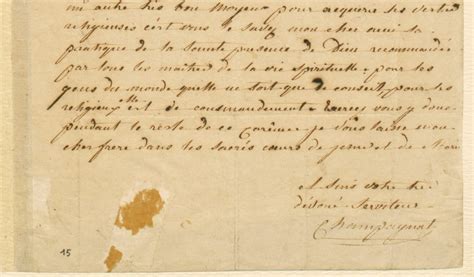 un autre très bon moyen pour acquérir les vertus
religieuses c'est vous le savez mon cher ami la
pratique de la sainte presence de Dieu recommandée
par tous les maîtres de la vie spirituelle pour les
gens du monde quelle ne soit que de conseil, pour les
religieux elle est de commandement Exercez vous y donc
pendant le reste de ce Carême. je vous laisse mon
cher frere dans les sacrés cœurs de jesus et de Marie
et suis votre très
dévoué Serviteur
Champagnat
15